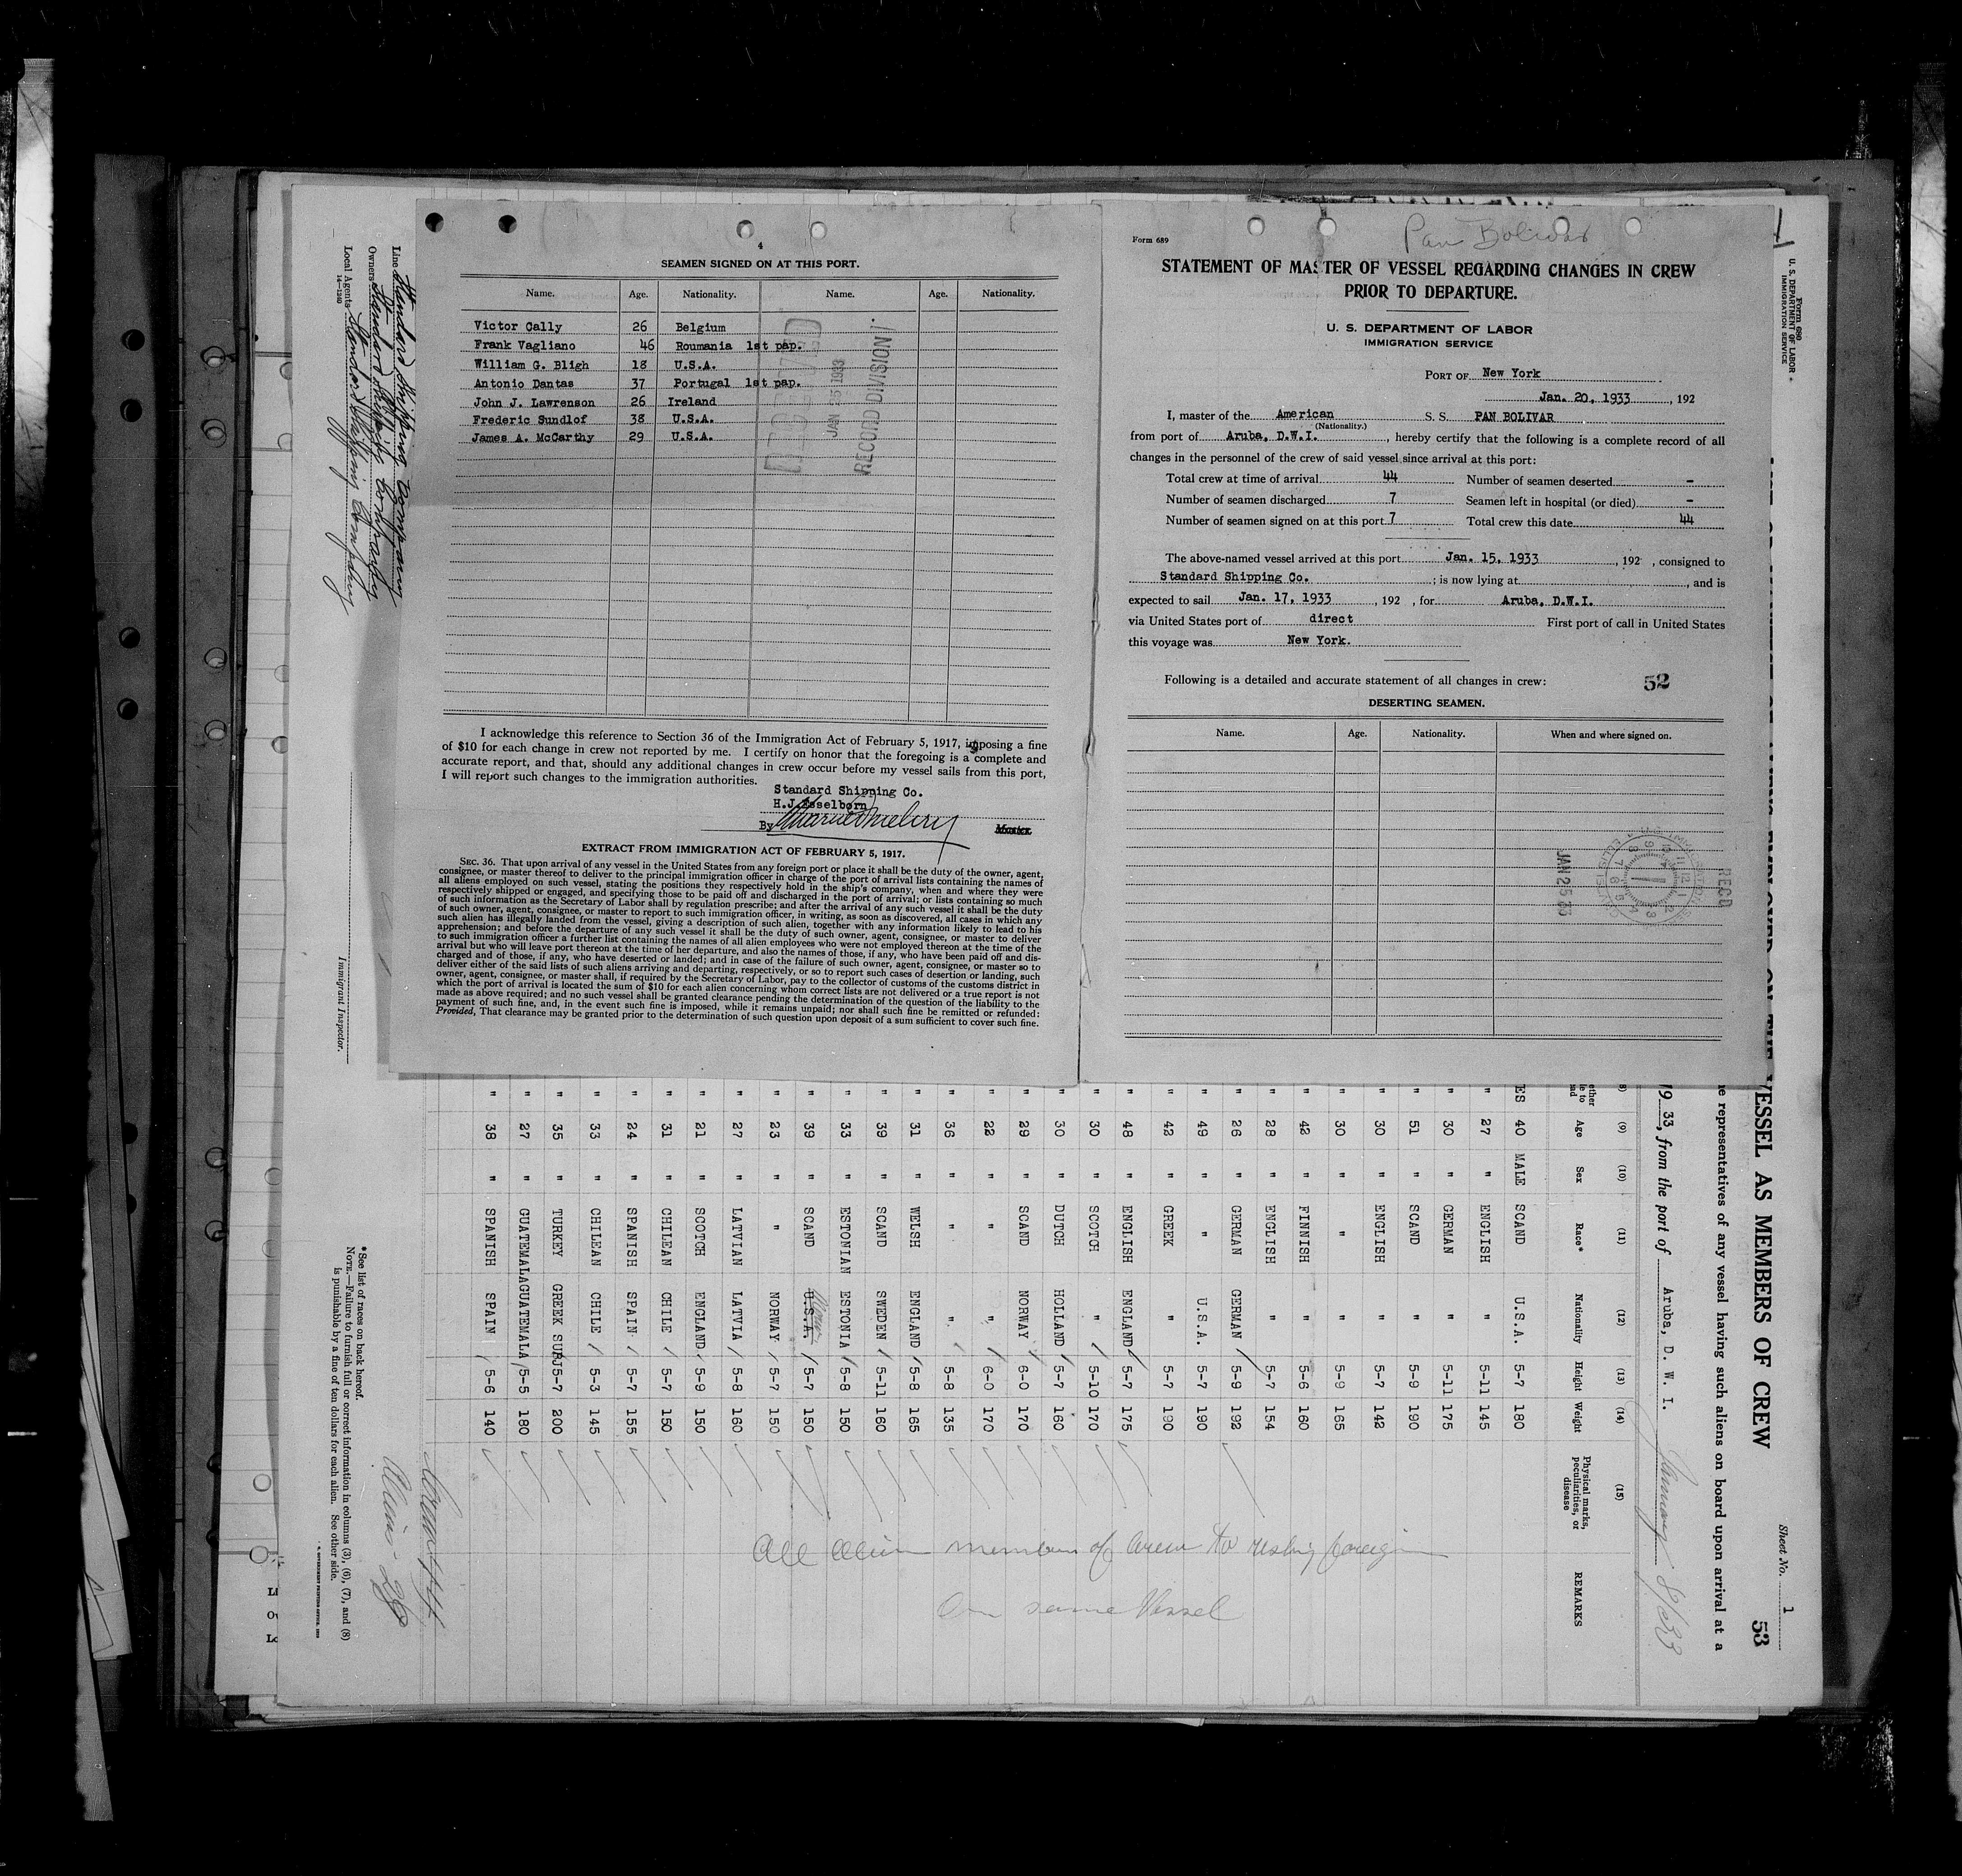 4
SEAMEN SIGNED ON AT THIS PORT.
Name. Age. Nationality. Name. Age. Nationality.
Victor Cally 26 Belgium
Frank Vagliano 46 Roumania 1st pap.
William G. Bligh 18 U.S.A.
Antonio Dantas 37 Portugal 1st pap.
John J. Lawrenson 26 Ireland
Frederic Sundlof 38 U.S.A.
James A. McCarthy 29 U.S.A.
JAN 25 1933
RECORD DIVISION
I acknowledge this reference to Section 36 of the Immigration Act of February 5, 1917, imposing a fine
of $10 for each change in crew not reported by me. I certify on honor that the foregoing is a complete and
accurate report, and that, should any additional changes in crew occur before my vessel sails from this port,
I will report such changes to the immigration authorities.
Standard Shipping Co.
H.J.Esselborn
By
Master.
EXTRACT FROM IMMIGRATION ACT OF FEBRUARY 5, 1917.
SEC. 36. That upon arrival of any vessel in the United States from any foreign port or place it shall be the duty of the owner, agent,
consignee, or master thereof to deliver to the principal immigration officer in charge of the port of arrival lists containing the names of
all aliens employed on such vessel, stating the positions they respectively hold in the ship's company, when and where they were
respectively shipped or engaged, and specifying those to be paid off and discharged in the port of arrival; or lists containing so much
of such information as the Secretary of Labor shall by regulation prescribe; and after the arrival of any such vessel it shall be the duty
of such owner, agent, consignee, or master to report to such immigration officer, in writing, as soon as discovered, all cases in which any
such alien has illegally landed from the vessel, giving a description of such alien, together with any information likely to lead to his
apprehension; and before the departure of any such vessel it shall be the duty of such owner, agent, consignee, or master to deliver
to such immigration officer a further list containing the names of all alien employees who were not employed thereon at the time of the
arrival but who will leave port thereon at the time of her departure, and also the names of those, if any, who have been paid off and dis-
charged and of those, if any, who have deserted or landed; and in case of the failure of such owner, agent, consignee, or master so to
deliver either of the said lists of such aliens arriving and departing, respectively, or so to report such cases of desertion or landing, such
owner, agent, consignee, or master shall, if required by the Secretary of Labor, pay to the collector of customs of the customs district in
which the port of arrival is located the sum of $10 for each alien concerning whom correct lists are not delivered or a true report is not
made as above required; and no such vessel shall be granted clearance pending the determination of the question of the liability to the
payment of such fine, and, in the event such fine is imposed, while it remains unpaid; nor shall such fine be remitted or refunded:
Provided, That clearance may be granted prior to the determination of such question upon deposit of a sum sufficient to cover such fine.
Form 689
Pan Bolivar
STATEMENT OF MASTER OF VESSEL REGARDING CHANGES IN CREW
PRIOR TO DEPARTURE.
U. S. DEPARTMENT OF LABOR
IMMIGRATION SERVICE
PORT OF New York
Jan. 20, 1933, 192
I, master of the American S. S. PAN BOLIVAR
(Nationality.)
from port of Aruba, D.W.I., hereby certify that the following is a complete record of all
changes in the personnel of the crew of said vessel since arrival at this port:
Total crew at time of arrival 44 Number of seamen deserted -
Number of seamen discharged 7 Seamen left in hospital (or died) -
Number of seamen signed on at this port 7 Total crew this date 44
The above-named vessel arrived at this port Jan. 15, 1933, 192 , consigned to
Standard Shipping Co. ; is now lying at , and is
expected to sail Jan. 17, 1933, 192 , for Aruba, D.W.I.
via United States port of direct First port of call in United States
this voyage was New York.
Following is a detailed and accurate statement of all changes in crew:
52
DESERTING SEAMEN.
Name. Age. Nationality. When and where signed on.
REC'D
JAN 25 33
Form 680
U. S. DEPARTMENT OF LABOR
IMMIGRATION SERVICE
Sheet No. 1
53
VESSEL AS MEMBERS OF CREW
representatives of any vessel having such aliens on board upon arrival at a
19 33, from the port of Aruba, D. W. I. January 8/33
(9) (10) (11) (12) (13) (14) (15)
Age Sex Race* Nationality Height Weight Physical marks, peculiarities, or disease REMARKS
40 MALE SCAND U.S.A. 5-7 180
" 27 " ENGLISH " 5-11 145
" 30 " GERMAN " 5-11 175
" 51 " SCAND " 5-9 190
" 30 " ENGLISH " 5-7 142
" 30 " " " 5-9 165
" 42 " FINNISH " 5-6 160
" 28 " ENGLISH " 5-7 154
" 26 " GERMAN GERMAN 5-9 192
" 49 " " U.S.A. 5-7 190
" 42 " GREEK " 5-7 190
" 48 " ENGLISH ENGLAND 5-7 175
" 30 " SCOTCH " 5-10 170
" 30 " DUTCH HOLLAND 5-7 160
" 29 " SCAND NORWAY 6-0 170
" 22 " " " 6-0 170
" 36 " " " 5-8 135
" 31 " WELSH ENGLAND 5-8 165
" 39 " SCAND SWEDEN 5-11 160
" 33 " ESTONIAN ESTONIA 5-8 150
" 39 " SCAND U.S.A. 5-7 150
" 23 " " NORWAY 5-7 150
" 27 " LATVIAN LATVIA 5-8 160
" 21 " SCOTCH ENGLAND 5-9 150
" 31 " CHILEAN CHILE 5-7 150
" 24 " SPANISH SPAIN 5-7 155
" 33 " CHILEAN CHILE 5-3 145
" 35 " TURKEY GREEK SUBJ 5-7 200
" 27 " GUATEMALA GUATEMALA 5-5 180
" 38 " SPANISH SPAIN 5-6 140
All alien members of crew to reship foreign
on same Vessel
Line Standard Shipping Company
Owners Standard Shipping Company
Local Agents Standard Shipping Company
14—1240
Immigrant Inspector.
*See list of races on back hereof.
NOTE.—Failure to furnish full or correct information in columns (3), (6), (7), and (8)
is punishable by a fine of ten dollars for each alien. See other side.